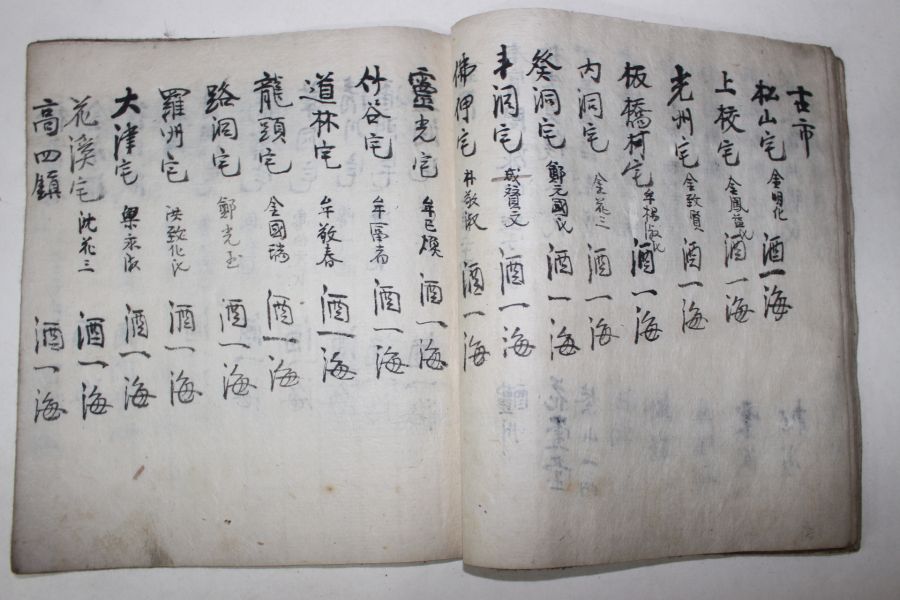 古市
松山宅 金明化 酒一海
上校宅 金鳳益氏 酒一海
光州宅 金致賢 酒一海
板橋柯宅 牟 淑氏 酒一海
內洞宅 金花三 酒一海
癸洞宅 鄭元國氏 酒一海
洞宅 成贊文 酒一海
佛甲宅 朴敬淑 酒一海
靈光宅 牟已煥 酒一海
竹谷宅 牟 酒一海
道林宅 牟敬春 酒一海
龍頭宅 金國瑞 酒一海
路洞宅 鄭光玉 酒一海
羅州宅 洪致化氏 酒一海
大津宅 梁永淑 酒一海
花溪宅 沈花三 酒一海
高四鎭 酒一海